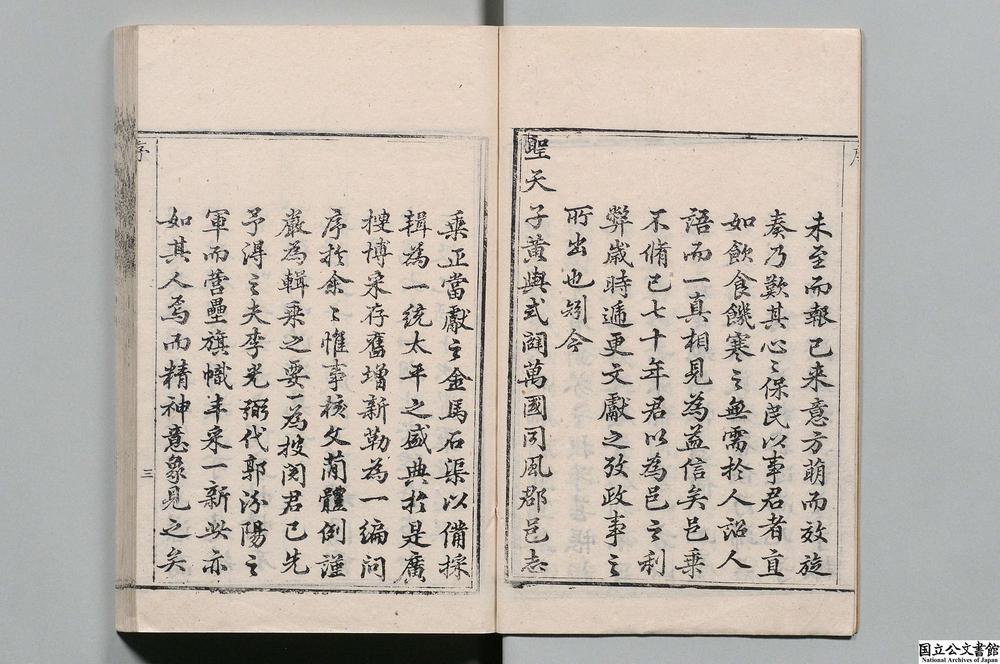 序
未至而報已来意方萌而效旋
奏乃歎其心之保民以事君者直
如飲食饑寒之無需於人詔人
語而一真相見為益信矣邑乗
不脩已七十年君以為邑之利
弊歲時遞更文獻之攷政事之
所出也矧今
聖天子黄輿式闢萬國同風郡邑志
乗正當獻之金馬石渠以備採
輯為一統太平之盛典於是廣
搜博采存舊增新勒為一編問
序於余余惟事核文簡體例謹
嚴為輯乗之要一為披閲君已先
予得之夫李光弼代郭汾陽之
軍而營壘旗幟丰采一新此亦
如其人焉而精神意象見之矣
序
三
国立公文書館
National Archives of Japan